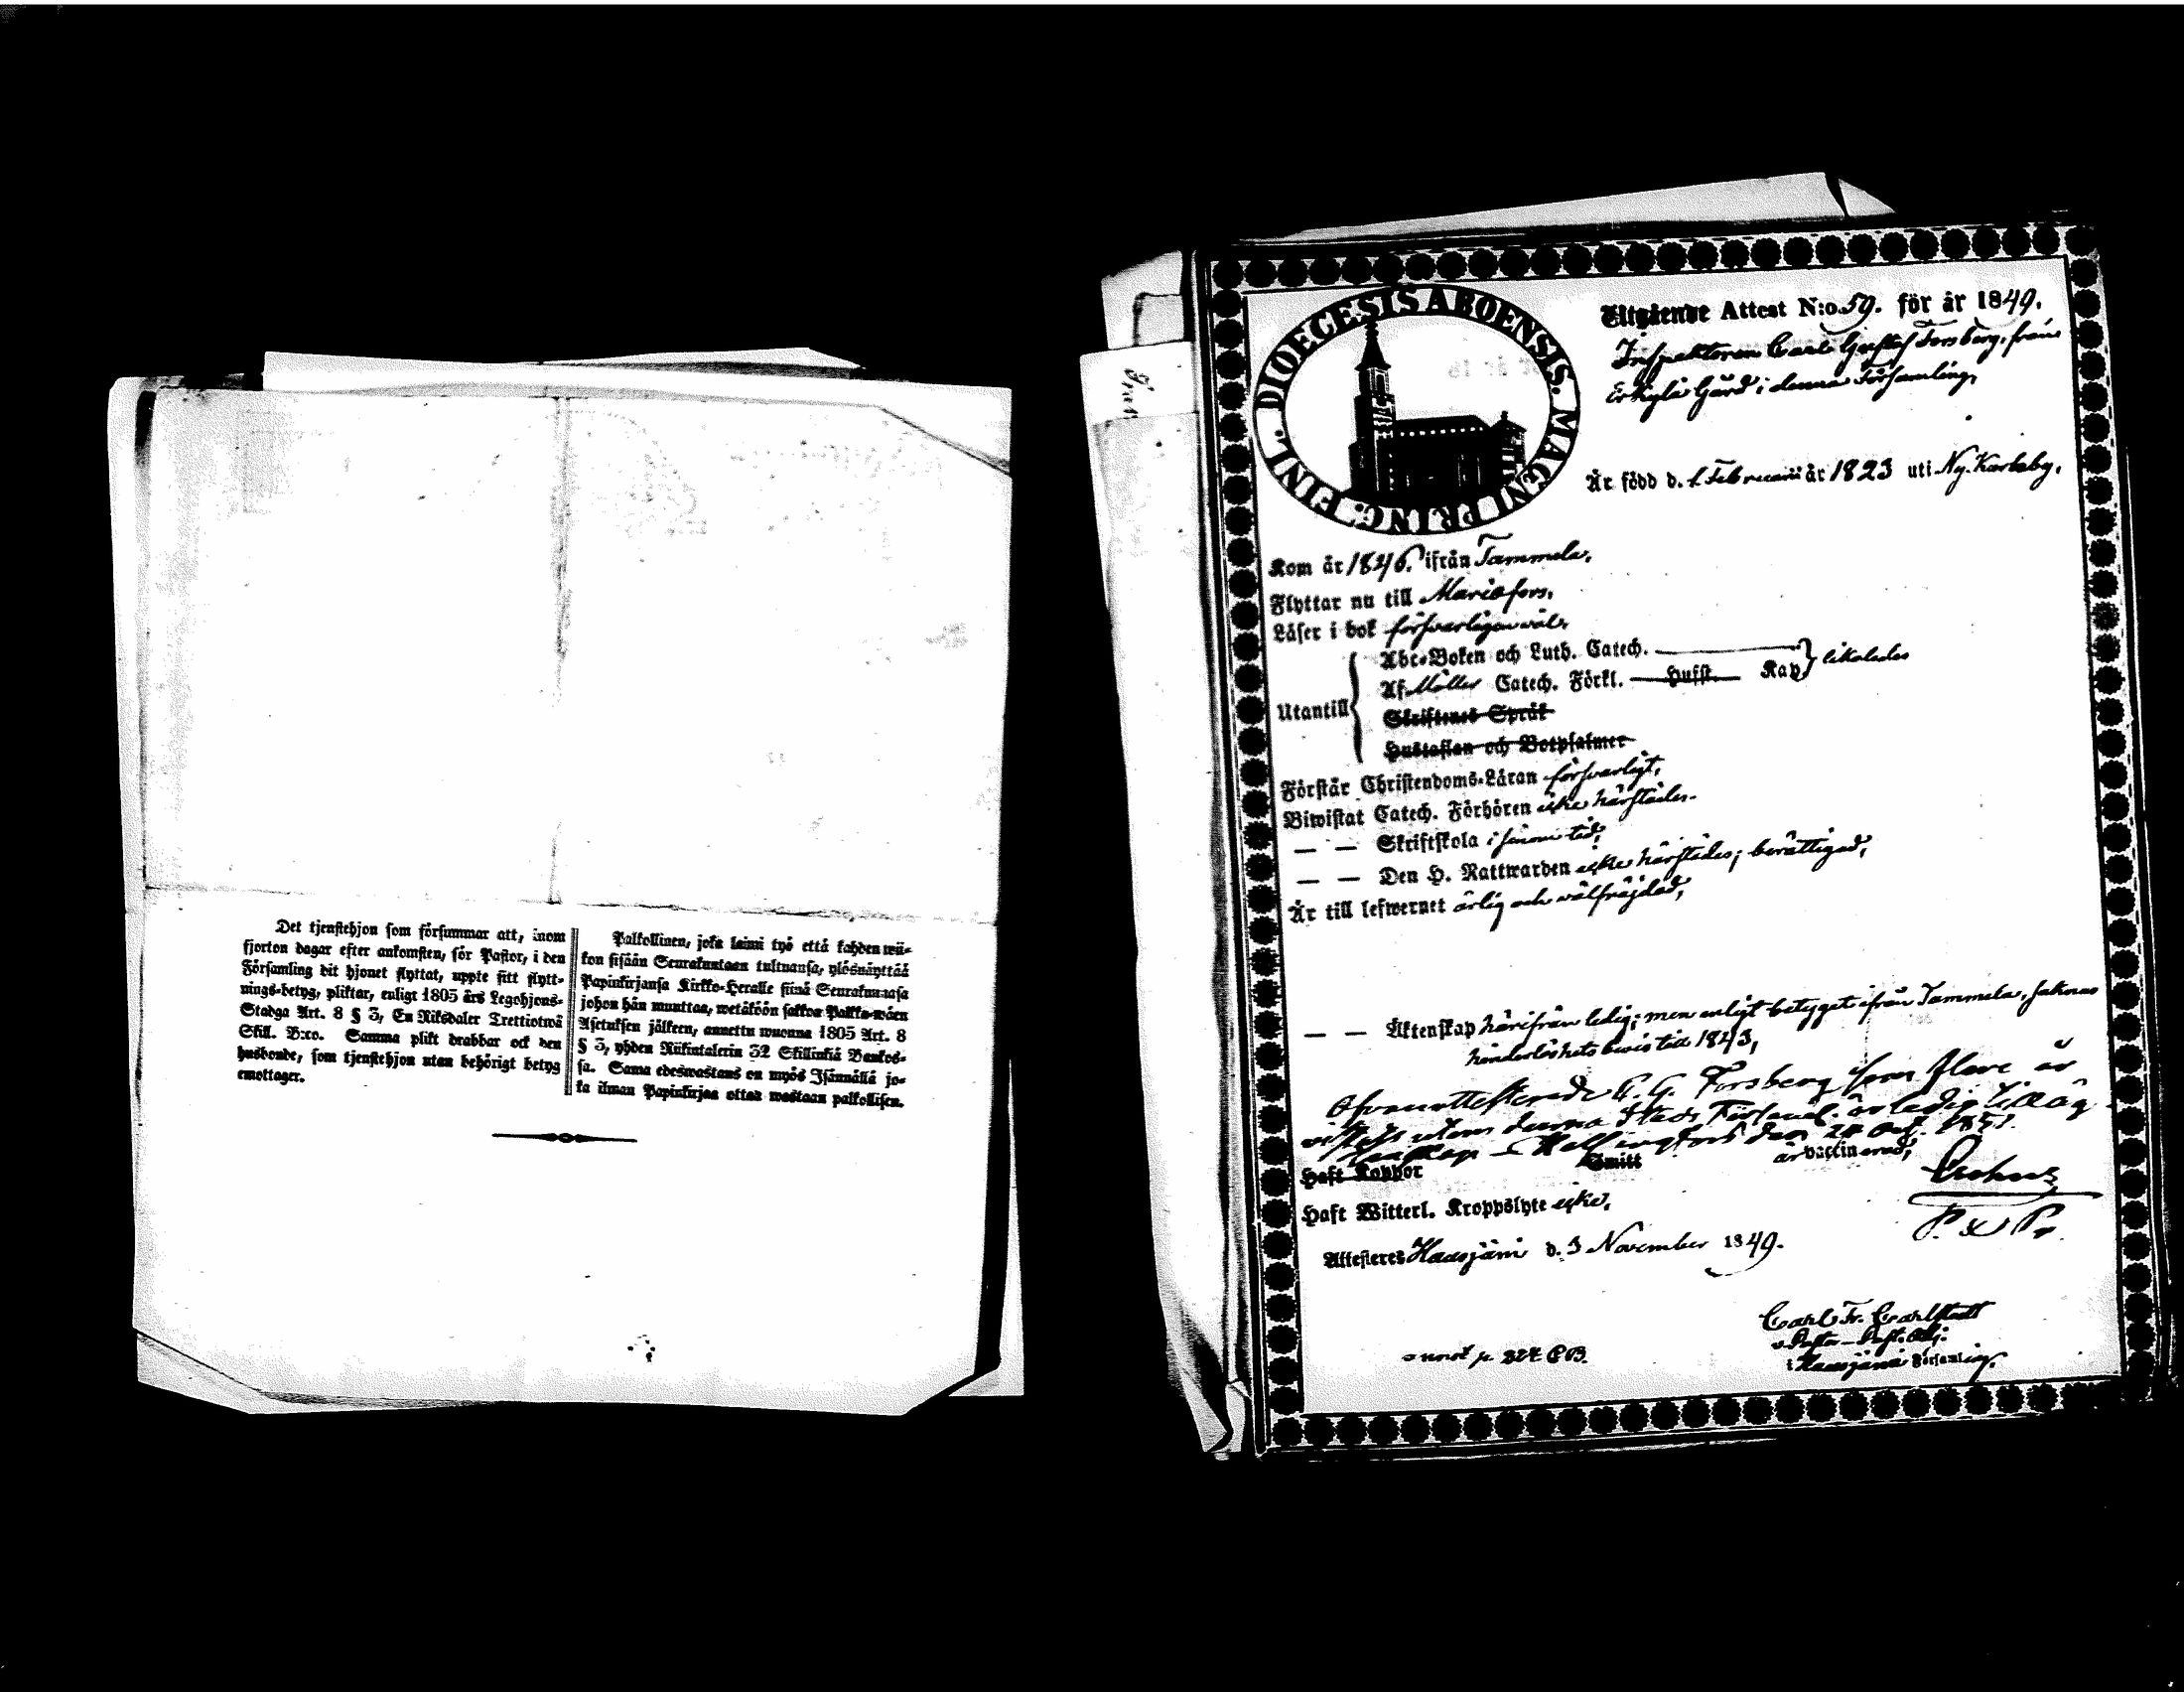 Det tjenstehjon som försummar att, inom
fjorton dagar efter ankomsten, för Pastor, i den
Församling dit hjonet flyttat, uppte sitt flytt-
nings-betyg, pliktar, enligt 1805 års Legohjons-
Stadga Art. 8 § 3, En Riksdaler Trettiotwå
Skill. B:co. Samma plikt drabbar ock den
husbonde, som tjenstehjon utan behörigt betyg
emottager.
Palkollinen, joka laimi lyö että kahden wii-
kon sisään Seurakuntaan tultuansa, ylösnäyttää
Papinkirjansa Kirkko-Herralle siinä Seurakunnasa
johon hän muuttaa, wetäköön sakkoa Palkka-wäen
Asetuksen jälkeen, annettu wuonna 1805 Art. 8
§ 3, yhden Riikintalerin 32 Skillinkiä Bankos-
sa. Sama edeswastaus on myös Isännällä jo-
ka ilman Papinkirjaa ottaa wastaan palkollisen.
DIOECESIS ABOENSIS. MAGNI PRINC. FINL.
Utgående Attest N:o 59. för år 1849.
Inspektoren Carl Gustaf Forsberg, från
Erkylä Gård i denna Församling,
Är född d. 1 Februarii år 1823 uti Ny-Karleby.
Kom år 1846. ifrån Tammela,
Flyttar nu till Mariefors,
Läser i bok försvarligen väl,
Utantill
Abc-Boken och Luth. Catech.
Af Möller Catech. Förkl. Hufst. Kap. likaledes
Skriftenes Språk
Hustaflan och Botpsalmer
Förstår Christendoms-Läran försvarligt,
Biwistat Catech. Förhören icke härstädes.
— — Skriftskola i sinom tid,
— — Den H. Nattwarden icke härstädes; berättigad,
Är till lefwernet ärlig och wälfräjdad,
— — Äktenskap härifrån ledig; men enligt betyget ifrån Tammela, saknas
hinderlöshets bevis till 1843,
Ofvanattesterade C. G. Forsberg som är
utom denna Stads Församl. är ledig till äg-
tenskap Helsingfors den 24 Oct. 1851.
Haft Koppor Smitt är vaccinerad,
Crohns
P. &
Haft Witterl. Kroppslyte icke,
Attesteres Hausjärvi d. 3 November 1849.
Carl Fr. Carlstedt
i Hausjärvi Församling.
annot p. 324 CB.